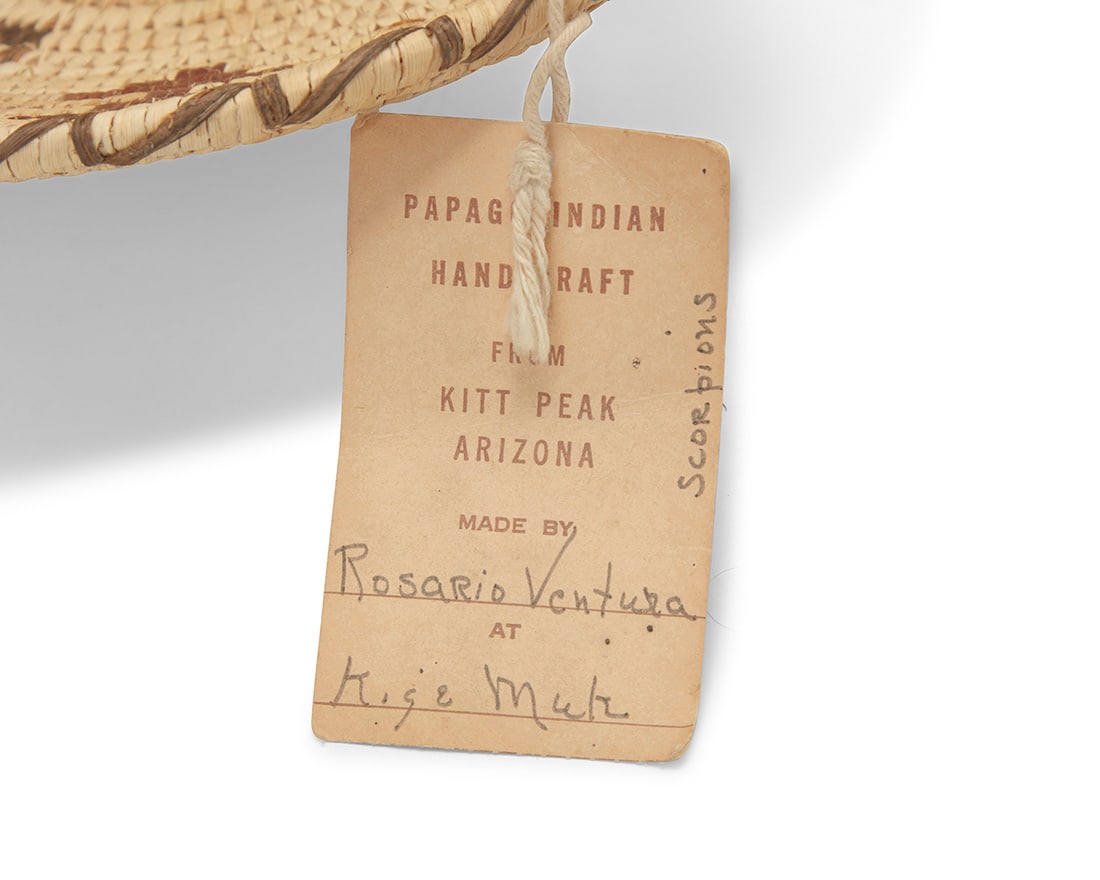 PAPAGO INDIAN
HANDICRAFT
FROM
KITT PEAK
ARIZONA
MADE BY
Rosario Ventura
AT
Scorpions